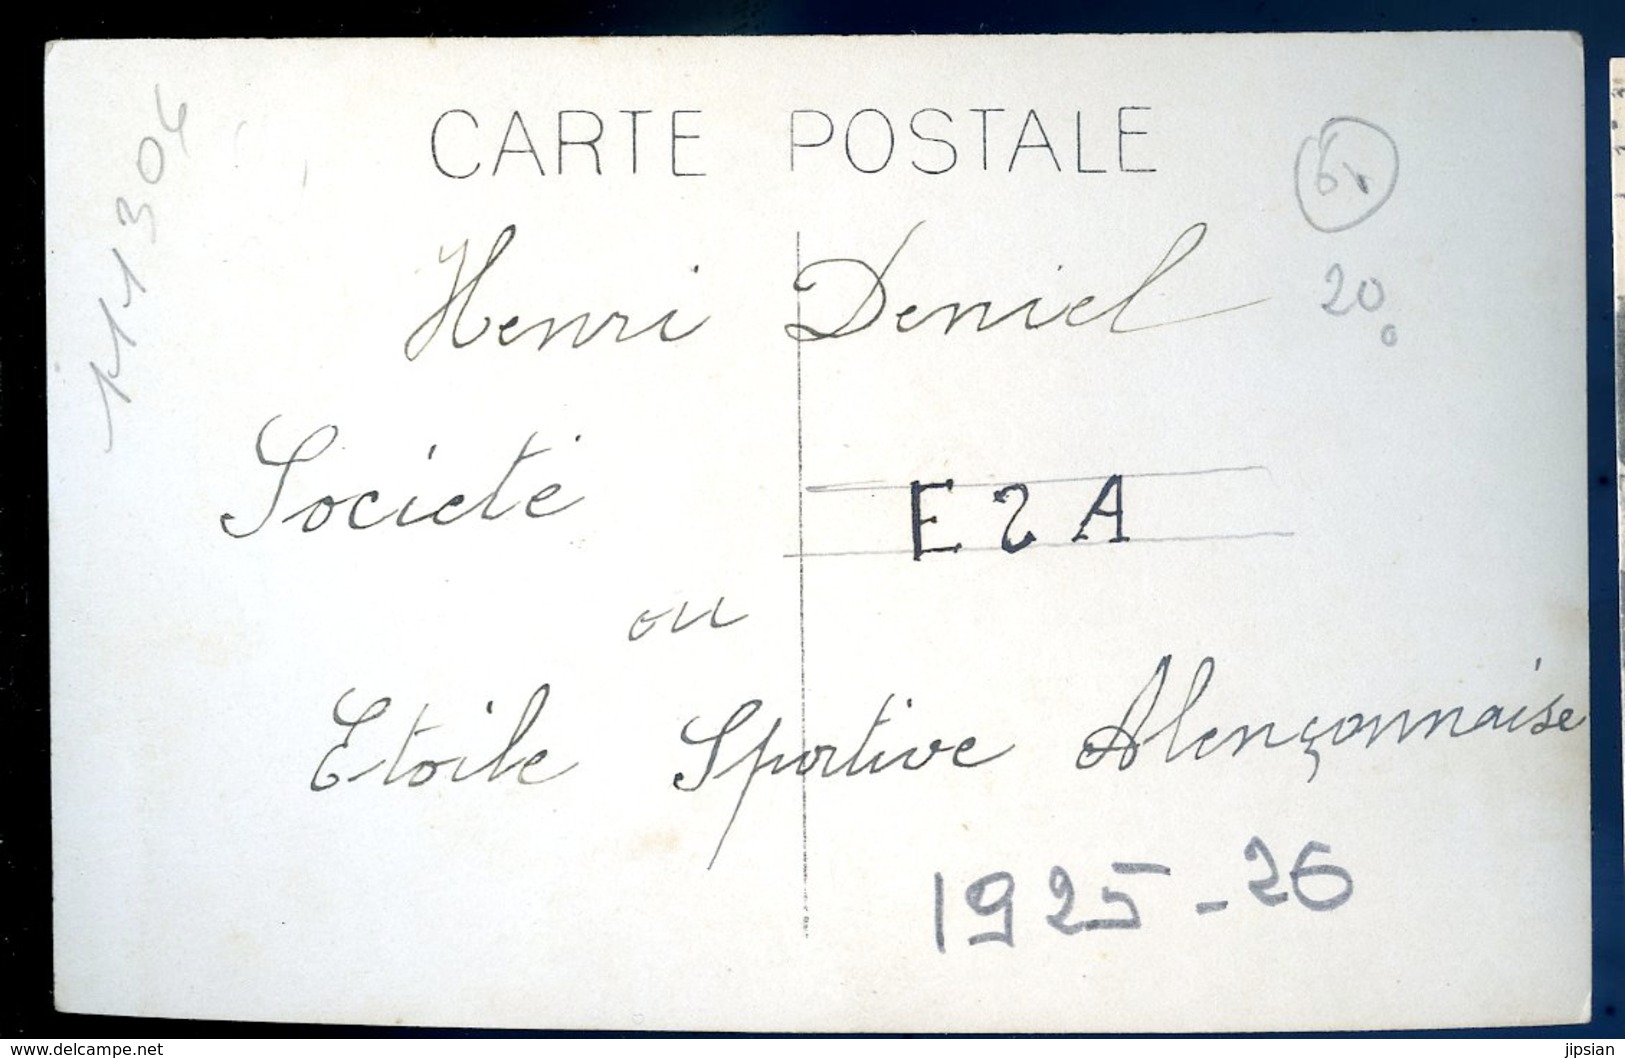 CARTE POSTALE
111304
20
Henri Deniel
Societé ESA
ou
Etoile Sportive Alençonnaise
1925-26
www.delcampe.net
jipsian